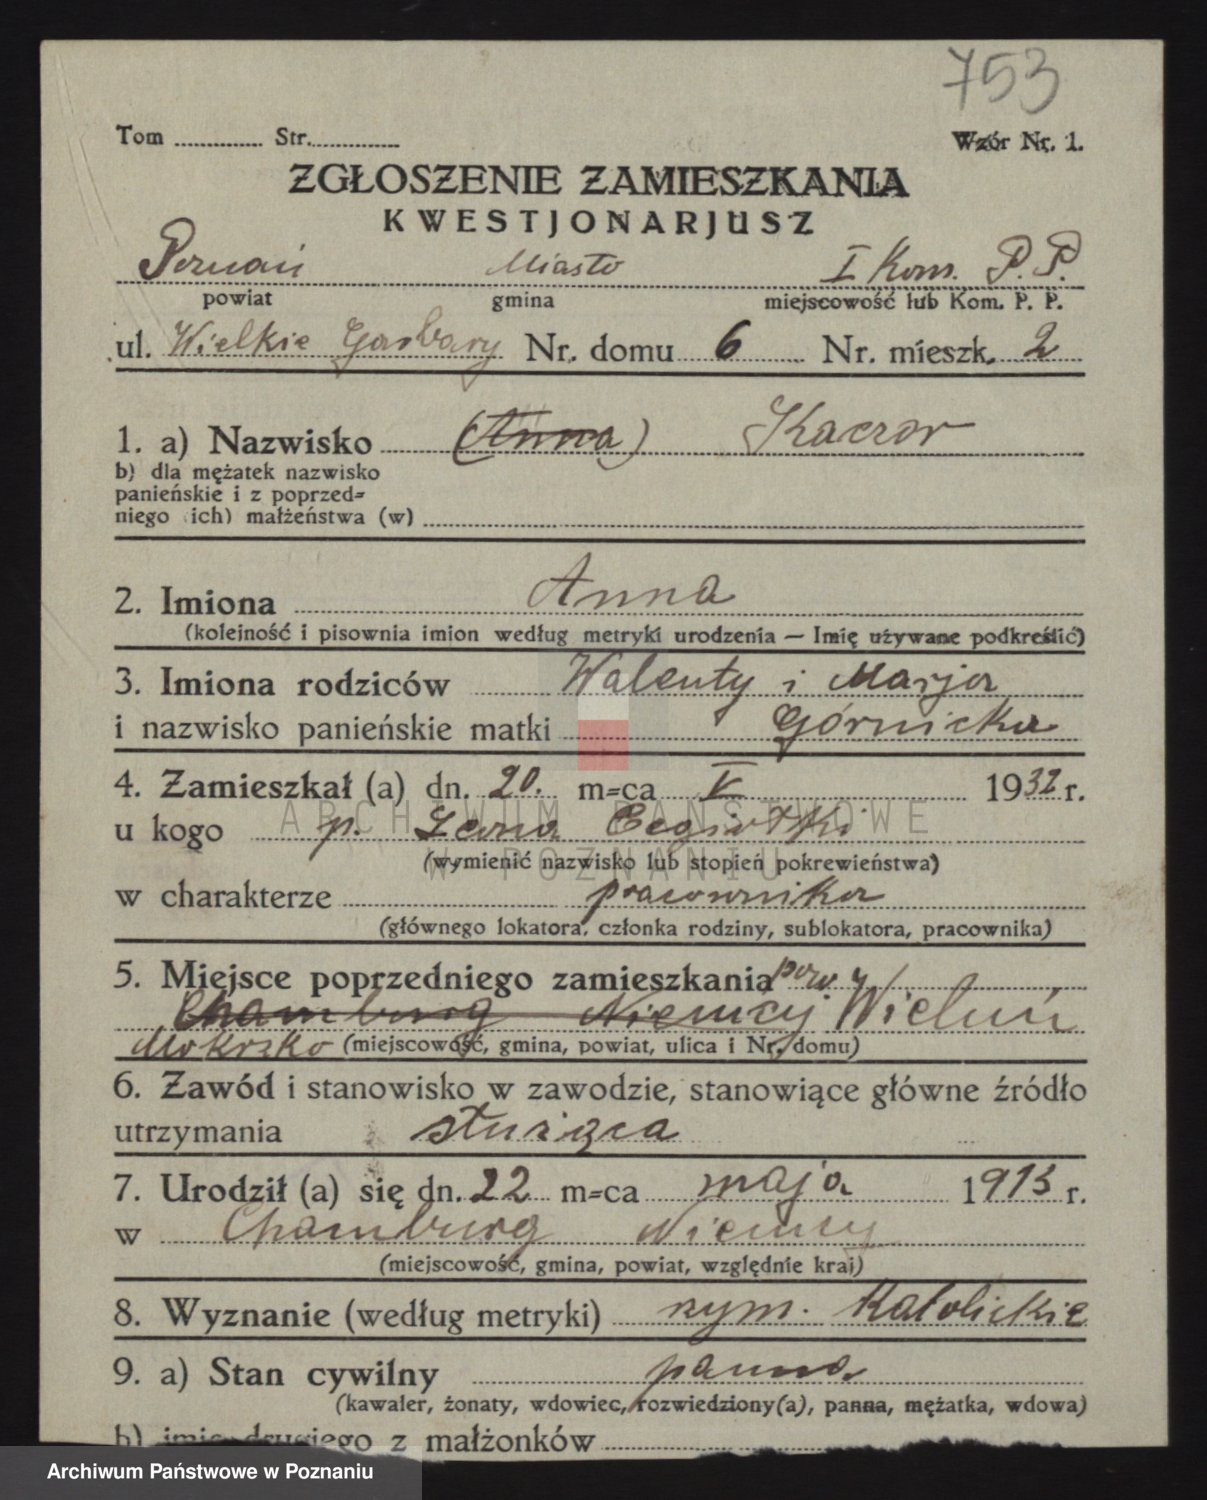 753
Tom ............. Str..............
Wzór Nr. 1.
ZGŁOSZENIE ZAMIESZKANIA
KWESTJONARJUSZ
Poznań Miasto I Kom. P. P.
powiat gmina miejscowość lub Kom. P. P.
ul. Wielkie Garbary Nr. domu 6 Nr. mieszk. 2
1. a) Nazwisko (Anna) Kaczor
b) dla mężatek nazwisko
panieńskie i z poprzed=
niego (ich) małżeństwa (w)
2. Imiona Anna
(kolejność i pisownia imion według metryki urodzenia — Imię używane podkreślić)
3. Imiona rodziców Walenty i Marja
i nazwisko panieńskie matki Górnicka
4. Zamieszkał (a) dn. 20. m=ca V 1932 r.
ARCHIWUM PAŃSTWOWE
u kogo p. Leona
W POZNANIU
(wymienić nazwisko lub stopień pokrewieństwa)
w charakterze pracownika
(głównego lokatora, członka rodziny, sublokatora, pracownika)
5. Miejsce poprzedniego zamieszkania pow.
Chamburg Niemcy Wieluń
Mokrsko (miejscowość, gmina, powiat, ulica i Nr. domu)
6. Zawód i stanowisko w zawodzie, stanowiące główne źródło
utrzymania służąca
7. Urodził (a) się dn. 22 m=ca maja 1913 r.
w Chamburg Niemcy
(miejscowość, gmina, powiat, względnie kraj)
8. Wyznanie (według metryki) rzym. Katolickie
9. a) Stan cywilny panna
(kawaler, żonaty, wdowiec, rozwiedziony(a), panna, mężatka, wdowa)
b) imię drugiego z małżonków
Archiwum Państwowe w Poznaniu